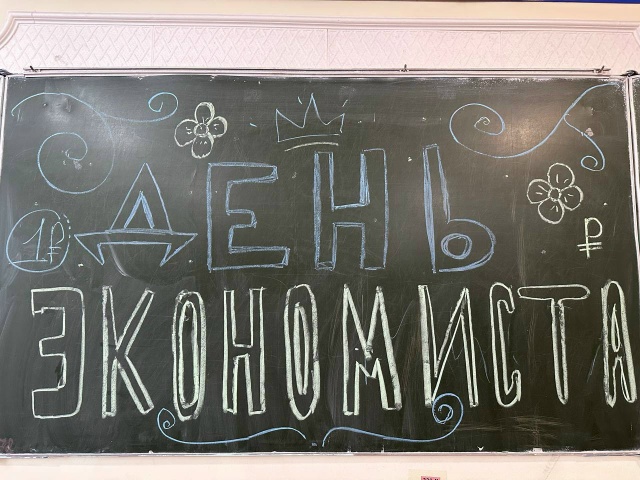 ДЕНЬ
1₽
₽
ЭКОНОМИСТА